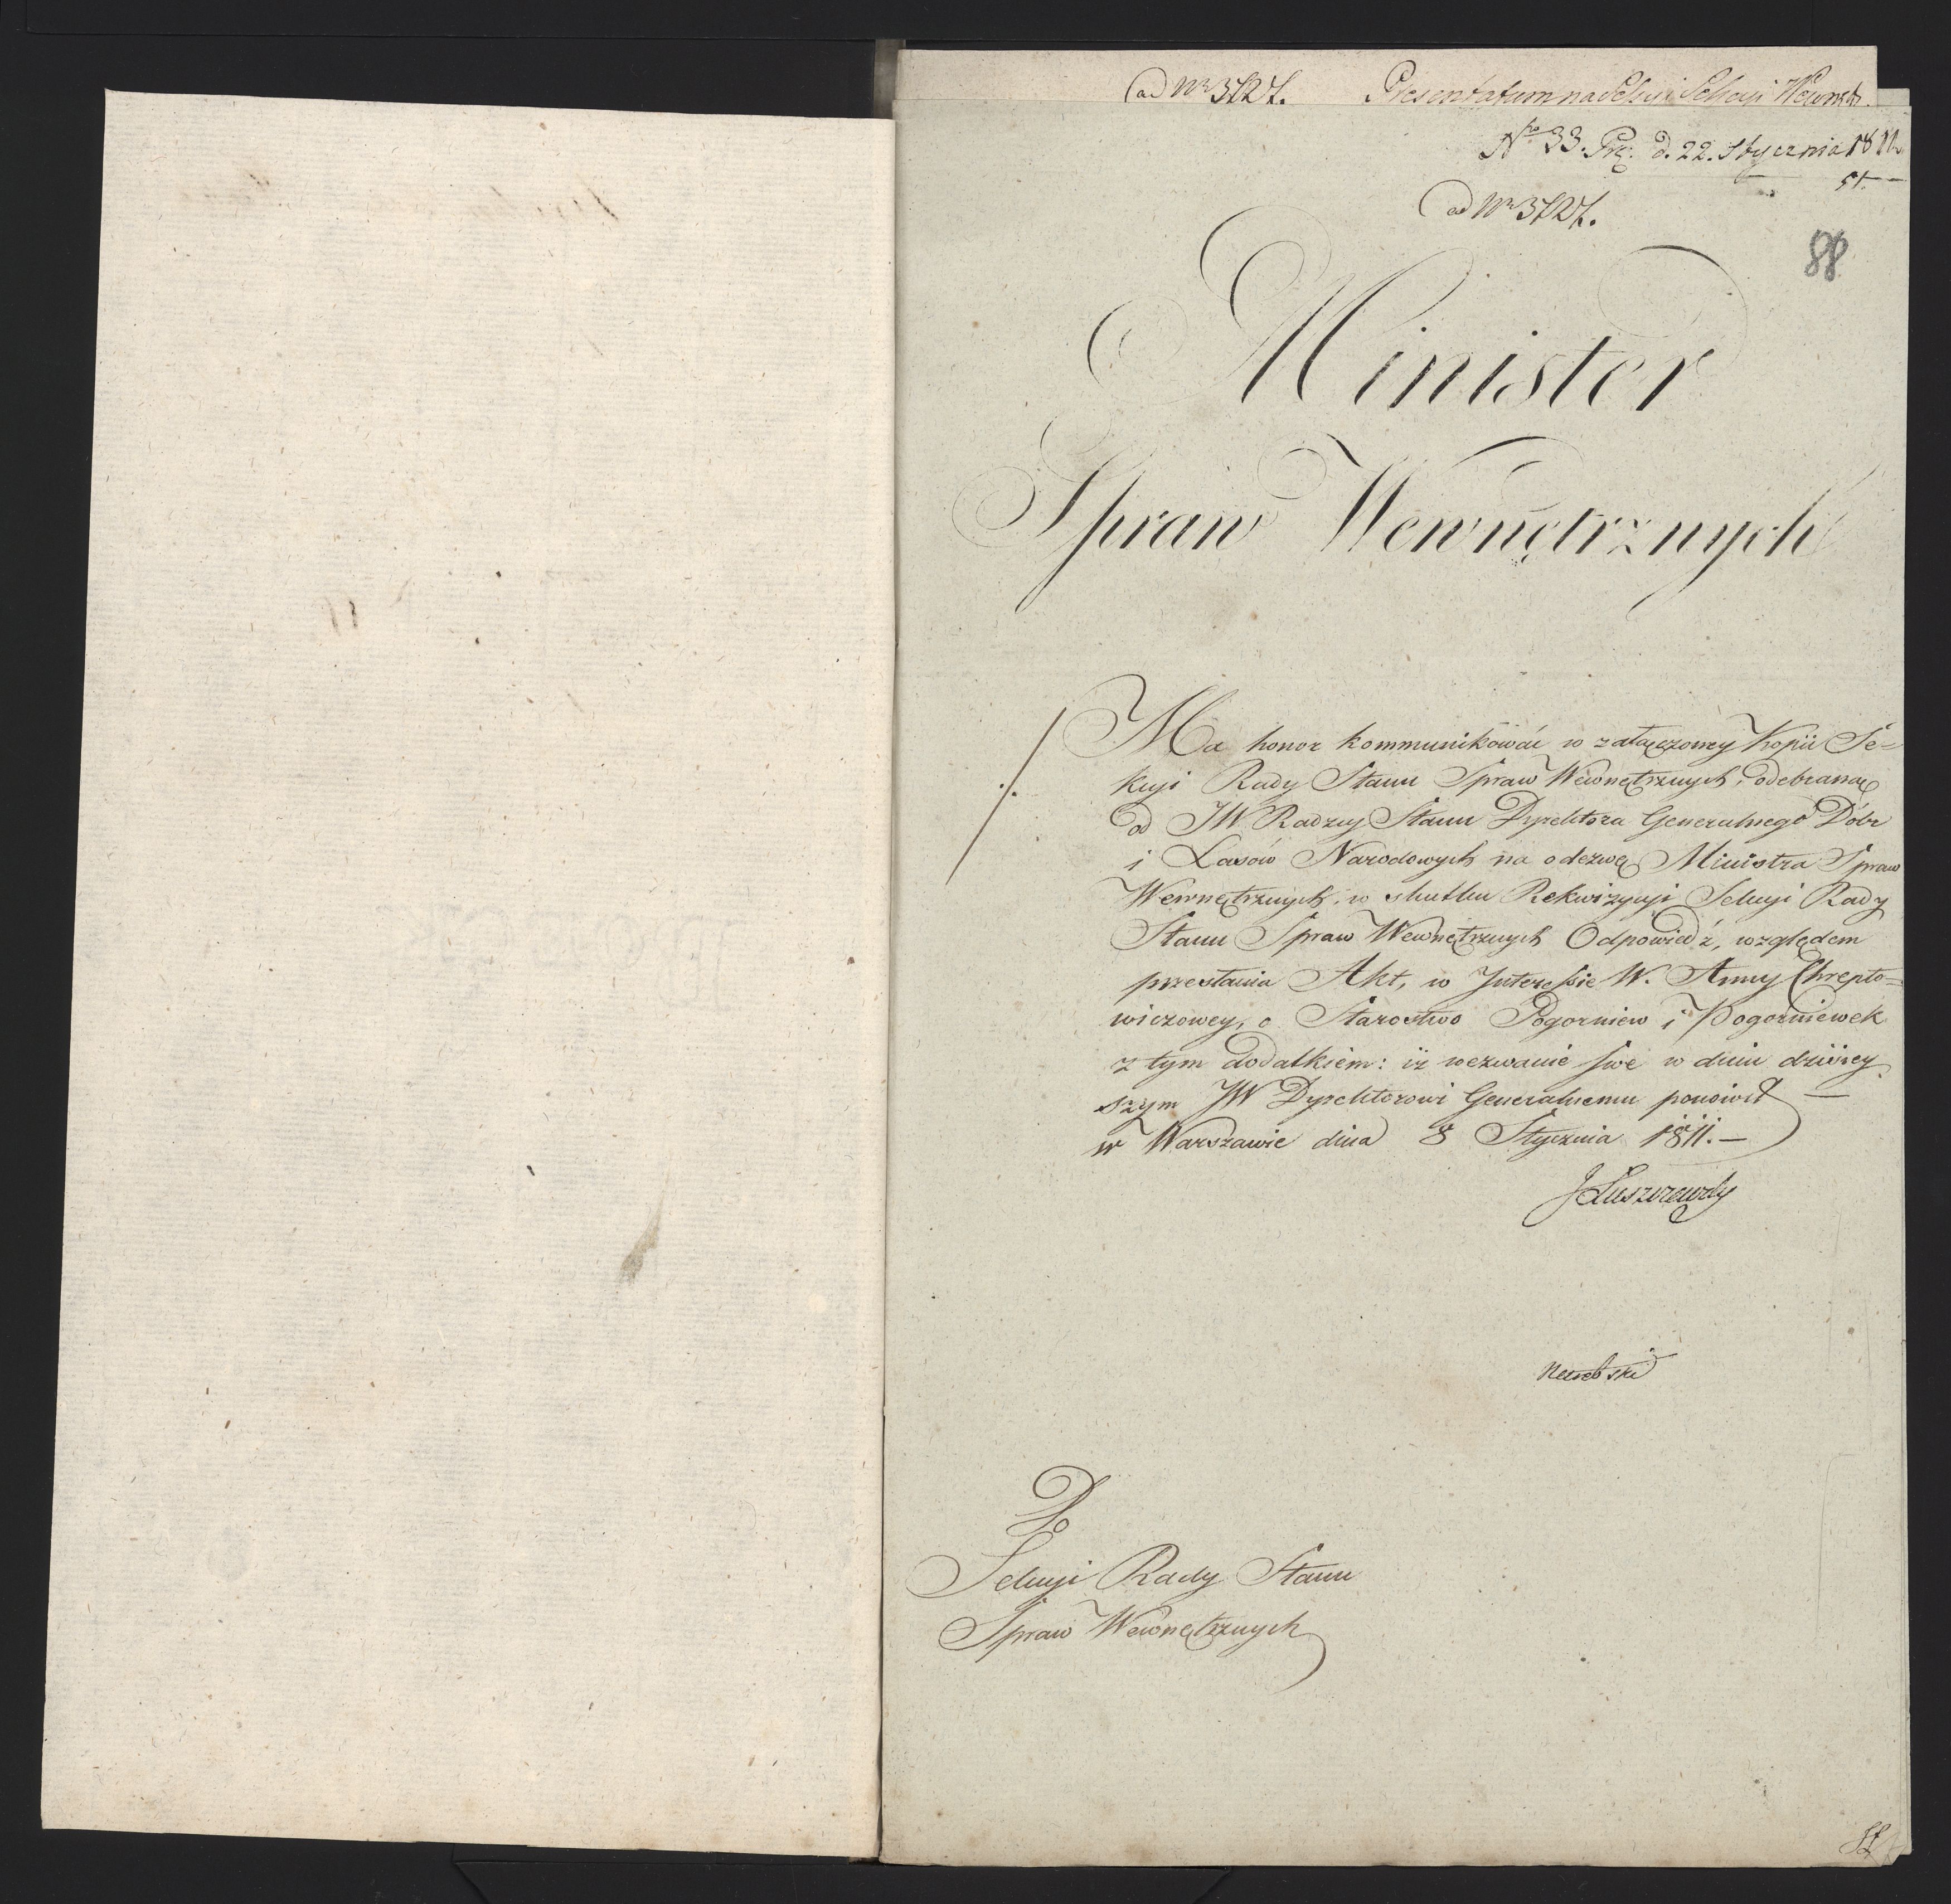 ad Nr 3727. Presentatum na Sekcyi Wewnętr.
Nro 33. Prez. d. 22. Stycznia 1811
ad Nr 3727.
88
Minister
Spraw Wewnętrznych
Ma honor kommunikować w załączoney Kopii Se=
kcyi Rady Stanu Spraw Wewnętrznych, odebraną
od JW Radzcy Stanu Dyrektora Generalnego Dóbr
i Lasów Narodowych na odezwę Ministra Spraw
Wewnętrznych, w skutku Rekwizycyi Sekcyi Rady
Stanu Spraw Wewnętrznych Odpowiedź, względem
przesłania Akt, w Interessie W. Anny Chrepto=
wiczowey, o Starostwo Pogorniew i Pogorniewek
z tym dodatkiem: iż wezwanie swe w dniu dzisiey
szym JW Dyrektorowi Generalnemu ponowił —
w Warszawie dnia 8 Stycznia 1811. —
J Łuszczewski
Do
Sekcyi Rady Stanu
Spraw Wewnętrznych